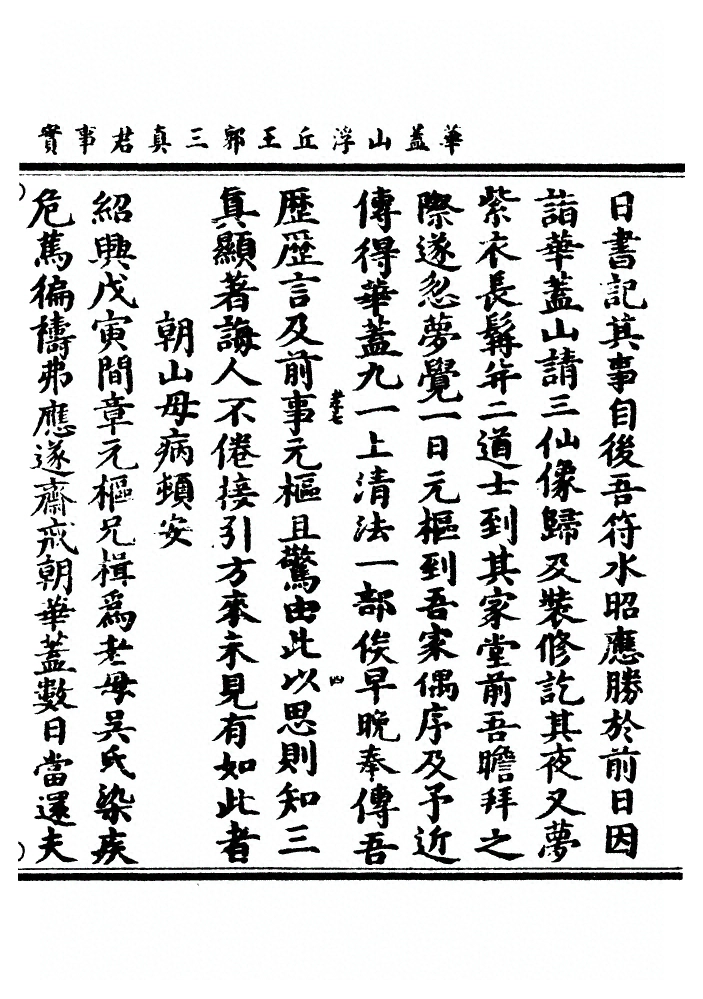 華蓋山浮丘王郭三真君事實
日書記其事自後吾符水昭應勝於前日因
詣華蓋山請三仙像歸及裝修訖其夜又夢
紫衣長髯并二道士到其家堂前吾瞻拜之
際遂忽夢覺一日元樞到吾家偶序及予近
傳得華蓋九一上清法一部俟早晚奉傳吾
卷七 四
歷歷言及前事元樞且驚由此以思則知三
真顯著誨人不倦接引方來未見有如此者
朝山母病頓安
紹興戊寅間章元樞兄楫為老母吳氏染疾
危篤徧禱弗應遂齋戒朝華蓋數日當還夫